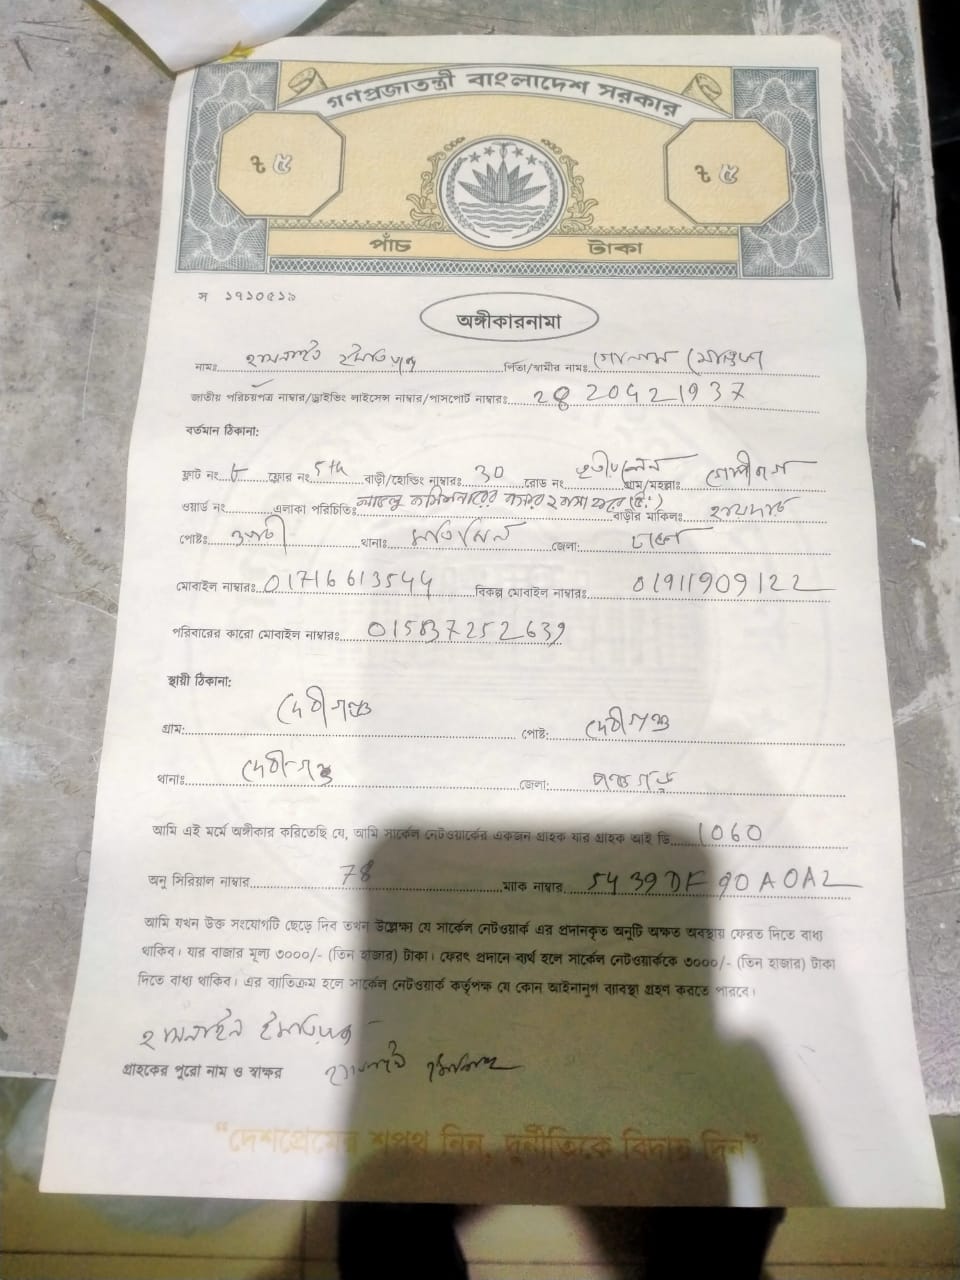 গণপ্রজাতন্ত্রী বাংলাদেশ সরকার
৳ ৫ ৳ ৫
পাঁচ টাকা
স ১৭১০৫১৯
অঙ্গীকারনামা
নামঃ পিতা/স্বামীর নামঃ গোলাম মোস্তফা
জাতীয় পরিচয়পত্র নাম্বার/ড্রাইভিং লাইসেন্স নাম্বার/পাসপোর্ট নাম্বারঃ 2820421937
বর্তমান ঠিকানা:
ফ্লাট নং ফ্লোর নং 5th বাড়ী/হোল্ডিং নাম্বারঃ 30 রোড নং গ্রাম/মহল্লাঃ
ওয়ার্ড নং এলাকা পরিচিতিঃ বাড়ীর মালিকঃ
পোষ্টঃ থানাঃ জেলা: ঢাকা
মোবাইল নাম্বারঃ 01716613544 বিকল্প মোবাইল নাম্বারঃ 01911909122
পরিবারের কারো মোবাইল নাম্বারঃ
স্থায়ী ঠিকানা:
গ্রাম: দেবীগঞ্জ পোষ্ট: দেবীগঞ্জ
থানাঃ দেবীগঞ্জ জেলা: পঞ্চগড়
আমি এই মর্মে অঙ্গীকার করিতেছি যে, আমি সার্কেল নেটওয়ার্কের একজন গ্রাহক যার গ্রাহক আই ডি 1060
অনু সিরিয়াল নাম্বার 78 ম্যাক নাম্বার 5439DF90A0A2
আমি যখন উক্ত সংযোগটি ছেড়ে দিব তখন উল্লেক্ষ্য যে সার্কেল নেটওয়ার্ক এর প্রদানকৃত অনুটি অক্ষত অবস্থায় ফেরত দিতে বাধ্য
থাকিব। যার বাজার মূল্য ৩০০০/- (তিন হাজার) টাকা। ফেরৎ প্রদানে ব্যর্থ হলে সার্কেল নেটওয়ার্ককে ৩০০০/- (তিন হাজার) টাকা
দিতে বাধ্য থাকিব। এর ব্যাতিক্রম হলে সার্কেল নেটওয়ার্ক কর্তৃপক্ষ যে কোন আইনানুগ ব্যাবস্থা গ্রহণ করতে পারবে।
গ্রাহকের পুরো নাম ও স্বাক্ষর
“দেশপ্রেমের শপথ নিন, দুর্নীতিকে বিদায় দিন”